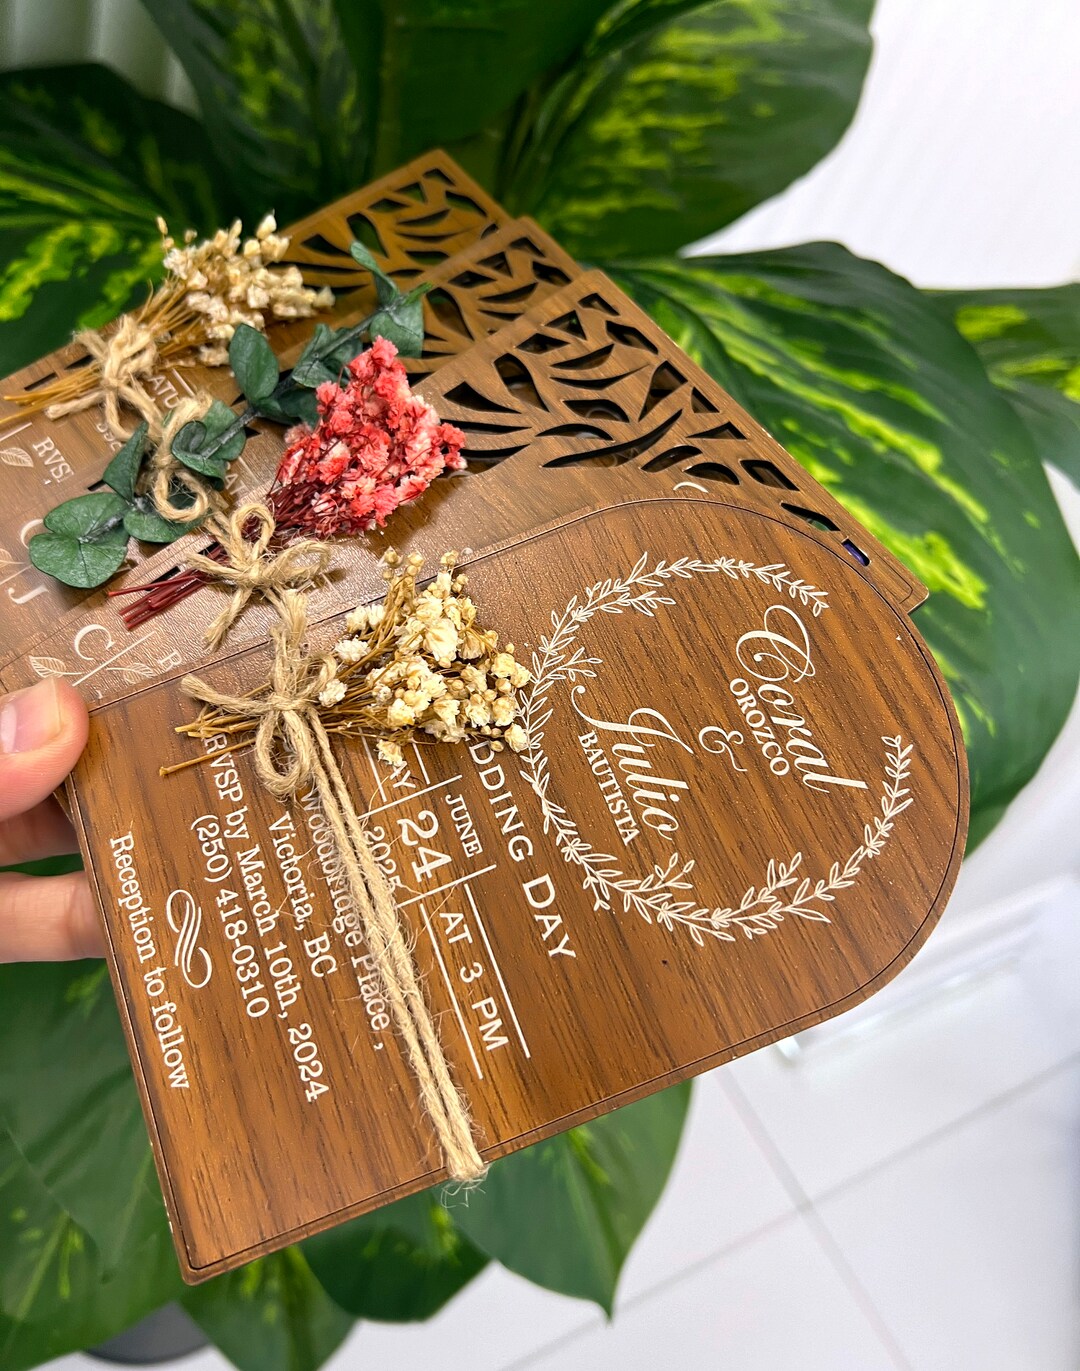 Coral
OROZCO
&
Julio
BAUTISTA
DDING DAY
JUNE
AY 24 AT 3 PM
2025
Woodbridge Place ,
Victoria, BC
RVSP by March 10th, 2024
(250) 418-0310
Reception to follow
C
J
RVS
ATU
J
R